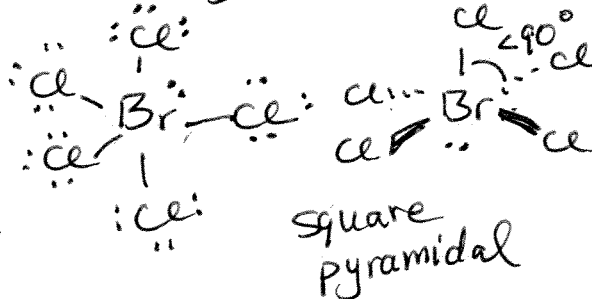 :Cl:
:Cl
Br
Cl:
:Cl
:Cl:
Cl
<90°
Cl
Cl
Br
Cl
Cl
square
pyramidal